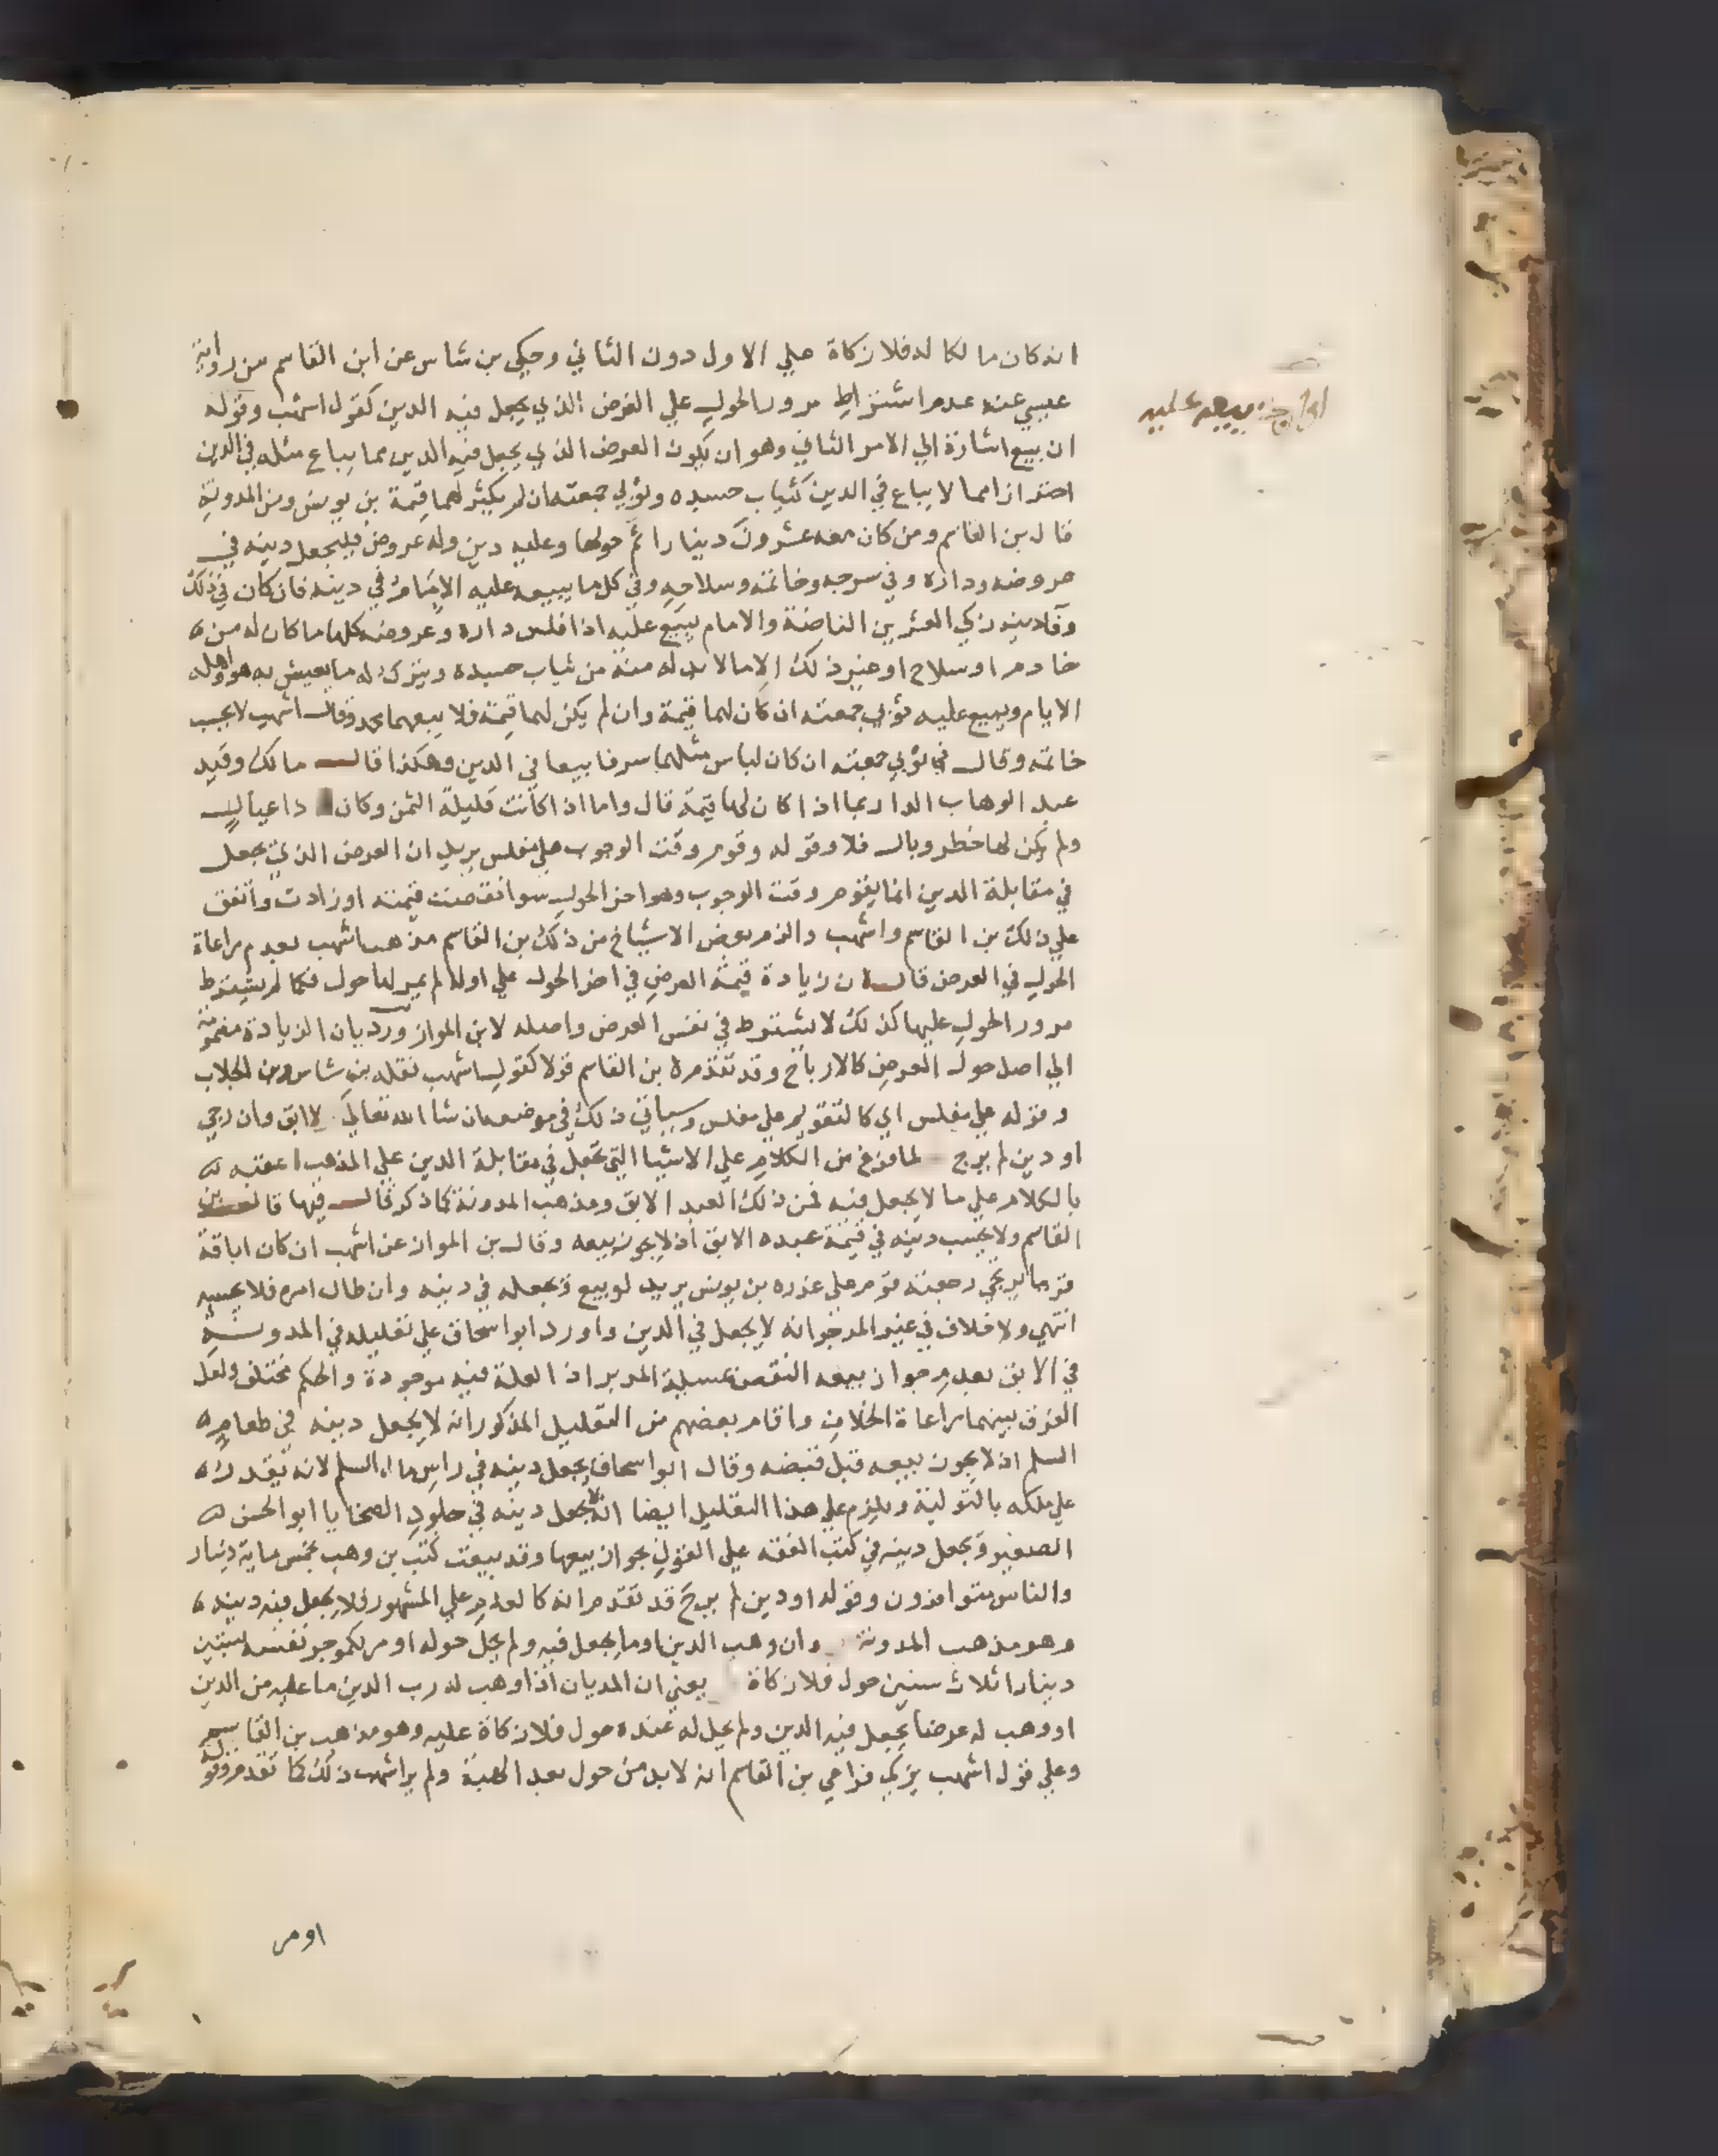 انه كان مالكا له فلا زكاة علي الاول دون الثاني وحكي بن شاس عن ابن القاسم من رواية
عيسي عنه عدم اشتراط مرور الحول علي العرض الذي يجعل فيه الدين كقول اشهب وقوله
ان بيع اشارة الي الامر الثاني وهو ان يكون العرض الذي يجعل فيه الدين مما يباع مثله في الدين
احترازا مما لا يباع في الدين كثياب جسده وثوبي جمعته ان لم يكثر لهما قيمة بن يونس ومن المدونة
قال بن القاسم ومن كان معه عشرون دينارا تم حولها وعليه دين وله عروض فليجعل دينه في
عروضه وداره وفي سرجه وخاتمه وسلاحه وفي كل ما يبيعه عليه الامام في دينه فان كان في ذلك
وفا دينه زكي العشرين الناضة والامام يبيع عليه اذا فلس داره وعروضه كلها ما كان له من
خادم او سلاح او غير ذلك الا ما لا بد له منه من ثياب جسده ويترك له ما يعيش به هو واهله
الايام ويبيع عليه ثوبي جمعته ان كان لهما قيمة وان لم يكن لهما قيمة فلا يبيعهما محمد وقال اشهب لا يحسب
خاتمه وقال في ثوبي جمعته ان كان لباس مثلهما سرفا بيعا في الدين وهكذا قال مالك وقيد
عبد الوهاب الدار بما اذا كان لها قيمة قال واما اذا كانت قليلة الثمن وكان ذا عيال
ولم يكن لها خطر وبال فلا وقوله وقوم وقت الوجوب علي مفلس يريد ان العرض الذي يجعل
في مقابلة الدين انما يقوم وقت الوجوب وهو اخر الحول سوا نقصت قيمته او زادت واتفق
علي ذلك بن القاسم واشهب والزم بعض الاشياخ من ذلك بن القاسم مذهب اشهب بعدم مراعاة
الحول في العرض قال ان زيادة قيمة العرض في اخر الحول علي اوله لم يمر لها حول فكما لم يشترط
مرور الحول عليها كذلك لا يشترط في نفس العرض واصله لابن المواز ورد بان الزيادة مضمومة
الي اصل حول العرض كالارباح وقد تقدم لابن القاسم قولا كقول اشهب نقله بن شاس وبن الجلاب
وقوله علي مفلس اي كالتقويم علي مفلس وسياتي ذلك في موضعه ان شا الله تعالي لا ابق وان رجي
او دين لم يرج لما فرغ من الكلام علي الاشيا التي تجعل في مقابلة الدين علي المذهب اعقبه
بالكلام علي ما لا يجعل فيه فمن ذلك العبد الابق ومذهب المدونة كما ذكر قال فيها قال بن
القاسم ولا يحسب دينه في قيمة عبده الابق اذ لا يجوز بيعه وقال بن المواز عن اشهب ان كان اباقه
قريبا يرتجي رجعته قوم علي غرره بن يونس يريد لو بيع ويجعله في دينه وان طال امره فلا يحسبه
انتهي ولا خلاف في غير المرجو انه لا يجعل في الدين واورد ابو اسحاق علي تعليله في المدونة
في الابق بعدم جواز بيعه النقض بمسيلة المدبر اذ العلة فيه موجودة والحكم مختلف ولعل
الفرق بينهما مراعاة الخلاف واقام بعضهم من التعليل المذكور انه لا يجعل دينه في طعام
السلم اذ لا يجوز بيعه قبل قبضه وقال ابو اسحاق يجعل دينه في راس مال السلم لانه يقدر
علي ملكه بالتولية ويلزم علي هذا التعليل ايضا انه لا يجعل دينه في جلود الضحايا ابو الحسن
الصغير ويجعل دينه في كتب الفقه علي القول بجواز بيعها وقد بيعت كتب بن وهب بخمس ماية دينار
والناس متوافرون وقوله او دين لم يرج قد تقدم انه كالعدم علي المشهور فلا يجعل فيه دينه
وهو مذهب المدونة وان وهب الدين او ما يجعل فيه ولم يحل حوله او مر لكموجر نفسه بستين
دينارا ثلاث سنين حول فلا زكاة يعني ان المديان اذا وهب له رب الدين ما عليه من الدين
او وهب له عرضا يجعل فيه الدين ولم يحل له عنده حول فلا زكاة عليه وهو مذهب بن القاسم
وعلي قول اشهب يزكي فراعي بن القاسم انه لا بد من حول بعد الهبة ولم ير اشهب ذلك كما تقدم وقوله
او مر